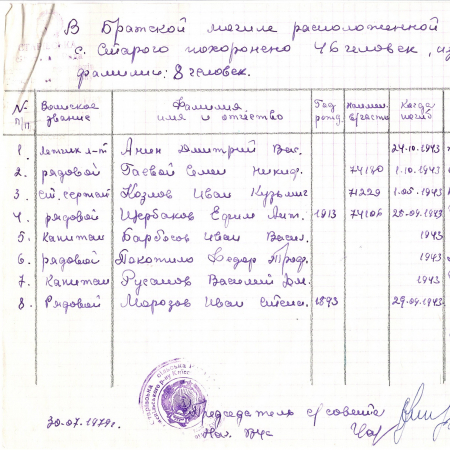 В Братской могиле расположенной
с. Старого похоронено 46 человек, из
фамилии: 8 человек.
№ п/п Воинское звание Фамилия имя и отчество Год рожд. Наимен. в/части Когда погиб
1. летчик л-т Анин Дмитрий Вас. 24.10.1943
2. рядовой Гаевой Семен Никиф. 74180 1.10.1943
3. ст. сержан Козлов Иван Кузьмич 71229 1.05.1943
4. рядовой Щербаков Ефим Ант. 1913 74106 25.09.1943
5. капитан Барбосов Иван Васил. 1943
6. рядовой Пакотило Федор Троф. 1943
7. Капитан Русанов Василий Дм. 1943
8. Рядовой Марозов Иван Степа. 1893 29.09.1943
30.07.1979г.
Председатель с/совета
Нач. ВУС